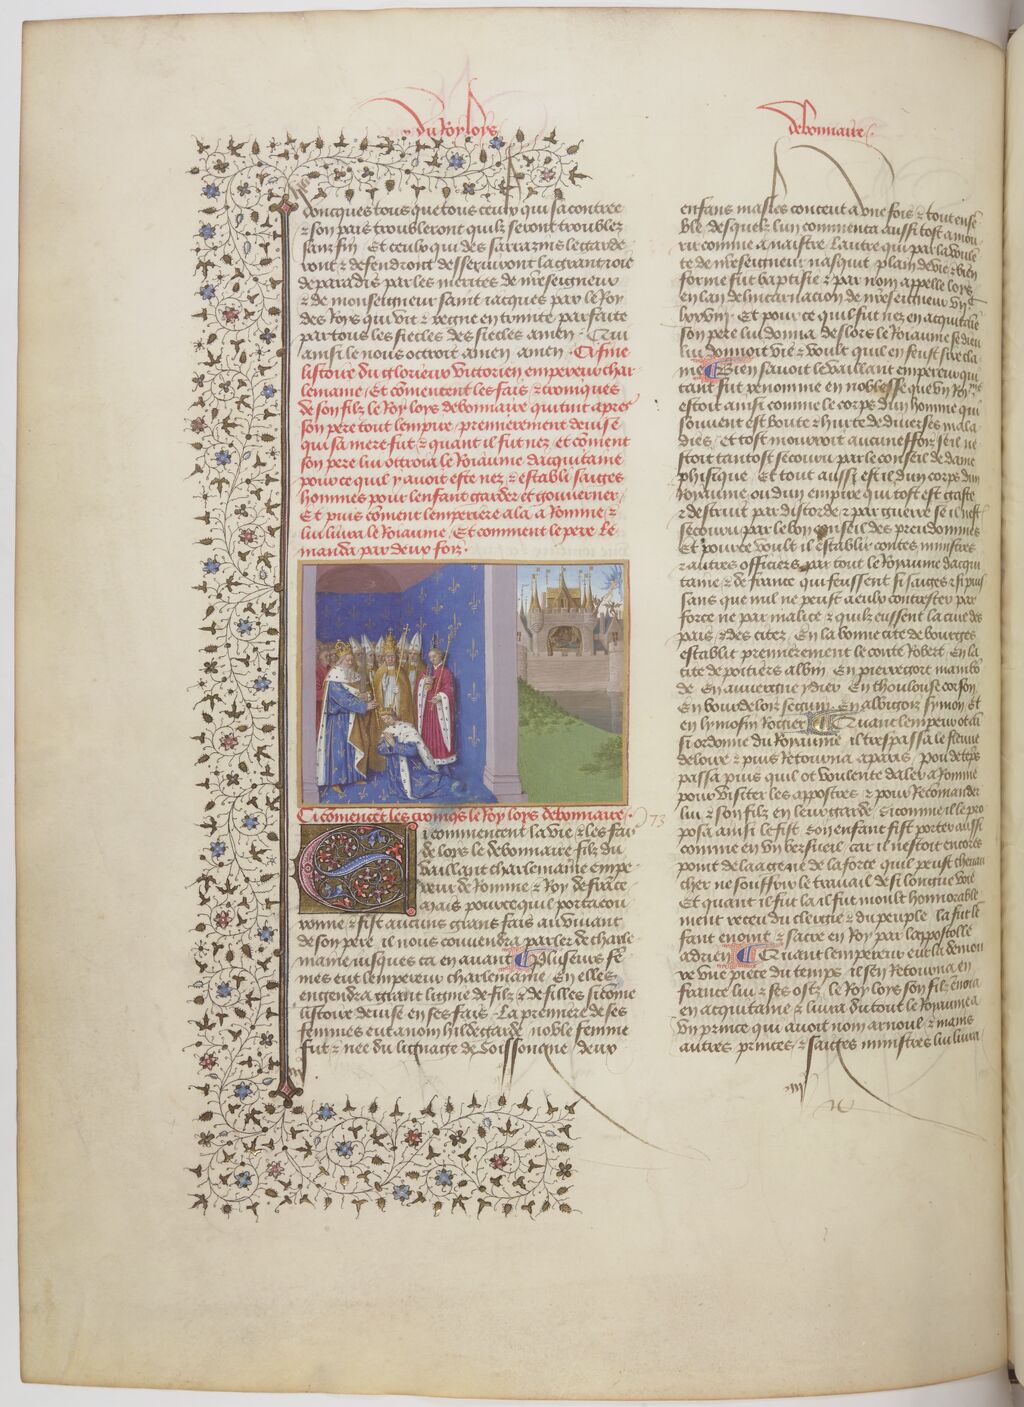 du Roy loys
debonnaire
doncques tous que tous ceulx qui sa contree
& son pais troubleront quilz seront troublez
sans fin Et ceulx qui des sarrazins le garde
ront & defendront desseruiront la grant ioie
de paradis par les merites de nreseigneur
& de monseigneur saint iacques par le Roy
des Roys qui vit & regne en trinite parfaite
par tous les siecles des siecles amen Qui
ainsi le nous octroit amen amen Cy fine
listoire du glorieux victorien empereur char
lemaine Et cõmencent les fais & croniques
de son filz le Roy loys debonnaire qui tint apres
son pere tout lempire premierement deuise
qui sa mere fut & quant il fut nez et cõment
son pere lui octroia le Roiaume dacquitaine
pource quil y auoit este nez & establi saiges
hommes pour lenfant garder et gouuerner
Et puis cõment lemperiere ala a Romme &
lui liura le Roiaume Et comment le pere le
manda par deux fois
Ci cõmencẽt les croniqs le Roy loys debonnaire
Ci commencent la vie & les fais
de loys le debonnaire filz du
vaillant charlemaine empe
reur de Romme & Roy de france
Mais pource quil porta cou
ronne & fist aucuns grans fais au viuant
de son pere il nous conuendra parler de charle
maine iusques ca en auant Pluseurs fe
mes eut lempereur charlemaine En elles
engendra grant lignie de filz & de filles si cõme
listoire deuise en ses fais La premiere de ses
femmes eut a nom hildegarde noble femme
fut & nee du lignage de Soissongne deux
enfans masles conceut a vne fois & tout ense
ble desquelz lun commenca aussi tost a mou
rir comme a naistre Lautre qui par la voule
te de nreseigneur nasquit plain de vie & bien
forme fut baptisie & par nom appelle loys
en lan de lincarnacion de nreseigneur vijc
lxxviij Et pour ce quil fut nez en acquitaine
son pere lui donna deslors le Roiaume se dieu
lui donnoit vie & voult quil en feust sire cla
me Bien sauoit le vaillant empereur qui
tant fut renomme en noblesse que vn Roy.me
estoit ainsi comme le corps dun homme qui
souuent est boute & hurte de diuerses mala
dies et tost mourroit aucuneffois seil ne
stoit tantost secouru par le conseil de dame
phisique Et tout aussi est il dun corps dun
Royaume ou dun empire qui tost est gaste
& destruit par discorde & par guerre se il nest
secouru par le bon conseil des preudommes
Et pource voult il establir contes ministres
& autres officiers par tout le Royaume dacqui
taine & de france qui feussent si saiges & si puis
sans que nul ne peust a eulx contrester par
force ne par malice & quilz eussent la cure des
pais & des citez En la bonne cite de bourges
establit premierement le conte Robert En la
cite de poitiers albin En pierregort
de En auuergne ydier En thoulouse corson
En bourdelois seguin En albigois symon Et
en lymosin Rogier Quant lempereur ot ai
si ordonne du Royaume il trespassa le fleuue
de loire & puis Retourna a paris pou de tẽps
passa puis quil ot voulente daler a Romme
pour visiter les appostres & pour Recomander
lui & son filz en leur garde Si comme il le pro
posa ainsi le fist Son enfant fist porter aussi
comme en vn bersueil car il nestoit encores
point de laage ne de la force quil peust cheuau
cher ne souffrir le trauail de si longue voie
Et quant il fut la il fut moult honnorable
ment receu du clergie & du peuple la fut le
fant enoint & sacre en Roy par lappostolle
adrien Quant lempereur eut la demou
re vne piece du temps il sen Retourna en
france lui & ses ostz le Roy loys son filz enuoia
en acquitaine & liura du tout le Royaume a
vn prince qui auoit nom arnoul & mains
autres princes & saiges ministres lui liura
73